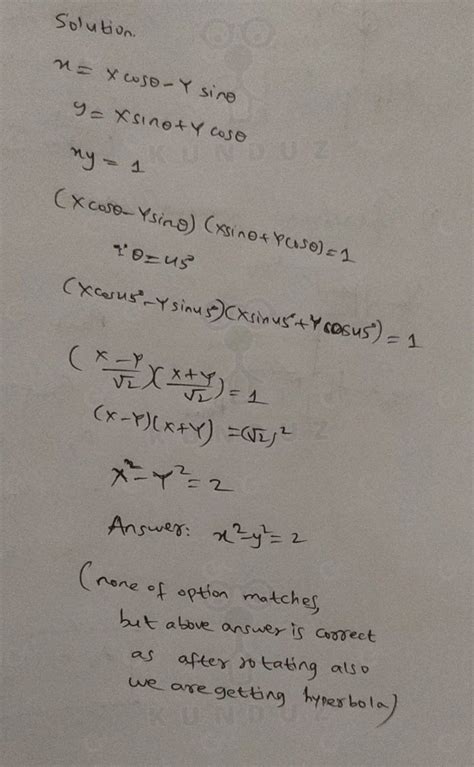 Solution.
x = X cosθ - Y sinθ
y = X sinθ + Y cosθ
xy = 1
KUNDUZ
(X cosθ - Y sinθ) (X sinθ + Y cosθ) = 1
∵ θ = 45°
(X cos45° - Y sin45°) (X sin45° + Y cos45°) = 1
(X - Y / √2) (X + Y / √2) = 1
(X - Y) (X + Y) = (√2)²
X² - Y² = 2
Answer: x² - y² = 2
(none of option matches,
but above answer is correct
as after rotating also
we are getting hyperbola)
KUNDUZ